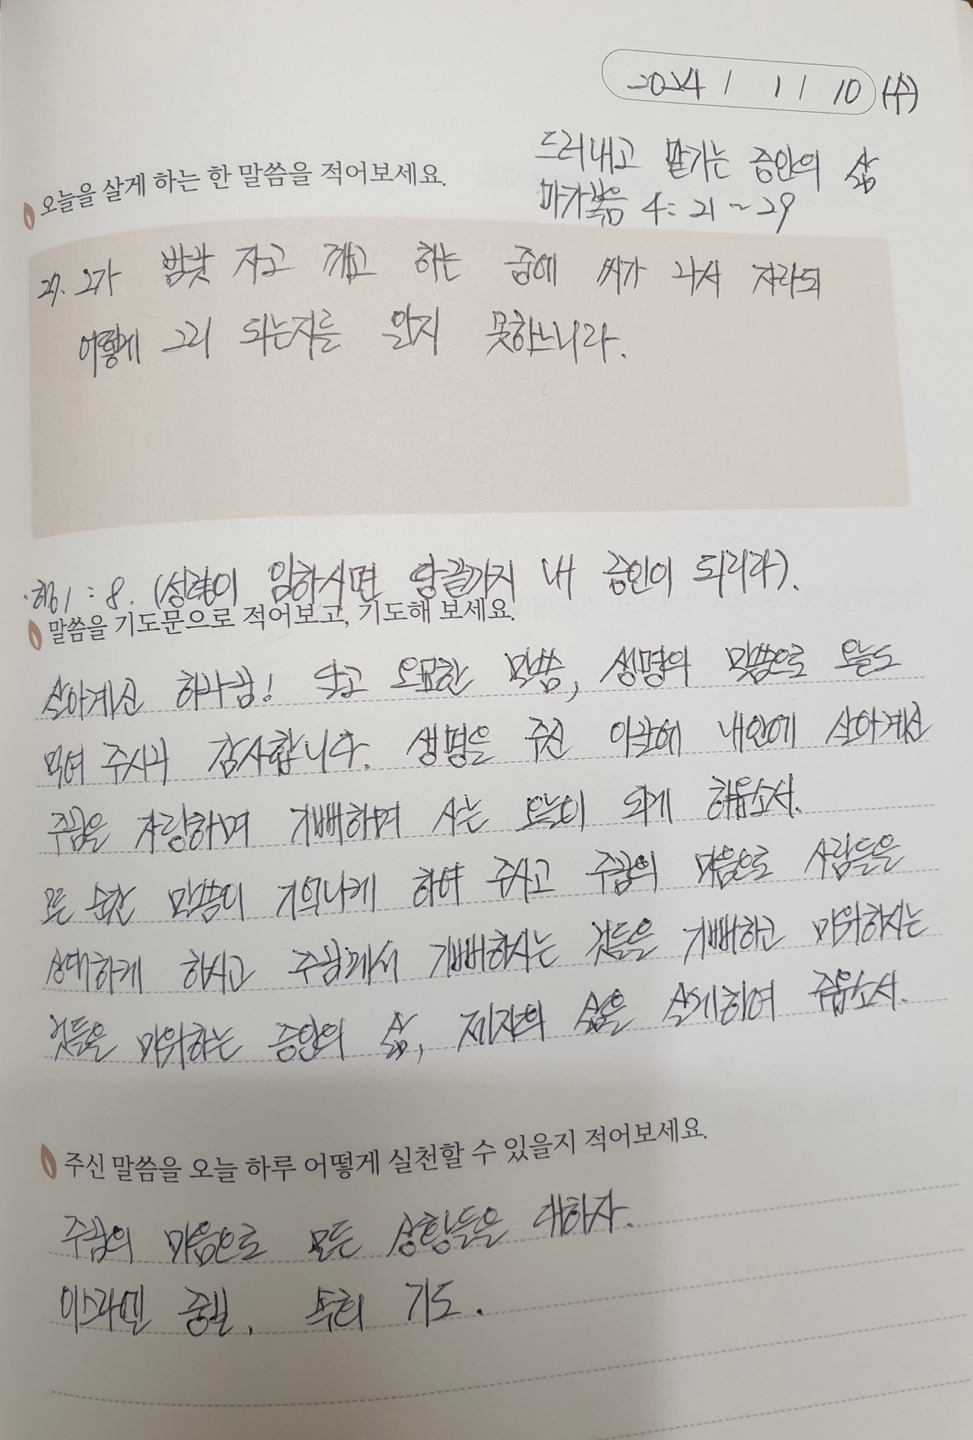 2024 / 1 / 10 (수)
드러내고 맡기는 증인의 삶
오늘을 살게 하는 한 말씀을 적어보세요.
마가복음 4: 21 ~ 29
27. 그가 밤낮 자고 깨고 하는 중에 씨가 나서 자라되
어떻게 그리 되는지를 알지 못하느니라.
행 1 : 8. (성령이 임하시면 땅끝까지 내 증인이 되리라).
말씀을 기도문으로 적어보고, 기도해 보세요.
살아계신 하나님! 달고 오묘한 말씀, 생명의 말씀으로 오늘도
먹여 주시니 감사합니다. 생명을 주신 이날에 내안에 살아계신
주님을 자랑하며 기뻐하며 사는 오늘이 되게 하옵소서.
모든 순간 말씀이 기억나게 하여 주시고 주님의 마음으로 사람들을
상대하게 하시고 주님께서 기뻐하시는 것들을 기뻐하고 미워하시는
것들을 미워하는 증인의 삶, 제자의 삶을 살게하여 주옵소서.
주신 말씀을 오늘 하루 어떻게 실천할 수 있을지 적어보세요.
주님의 마음으로 모든 상황들을 대하자.
이스라엘 중보. 속회 기도.